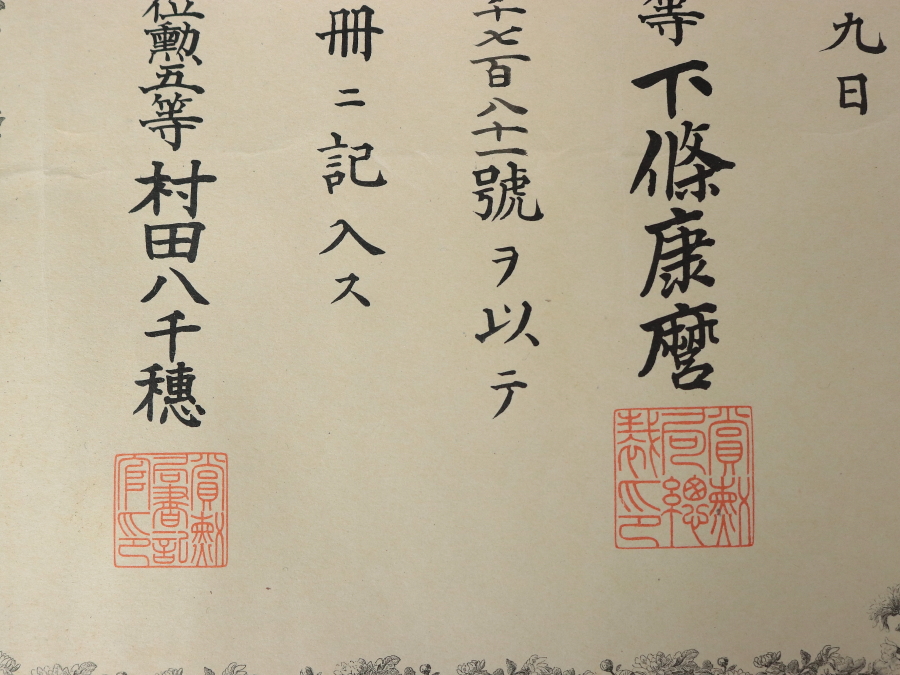 九日
等下條康麿
賞勲局總裁印
千七百八十一號ヲ以テ
冊ニ記入ス
位勲五等村田八千穗
賞勲局書記官印